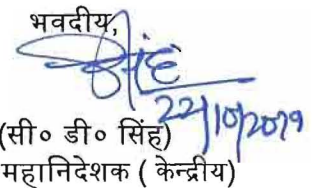 भवदीय,
सिंह
22/10/2019
(सी० डी० सिंह)
महानिदेशक ( केन्द्रीय)